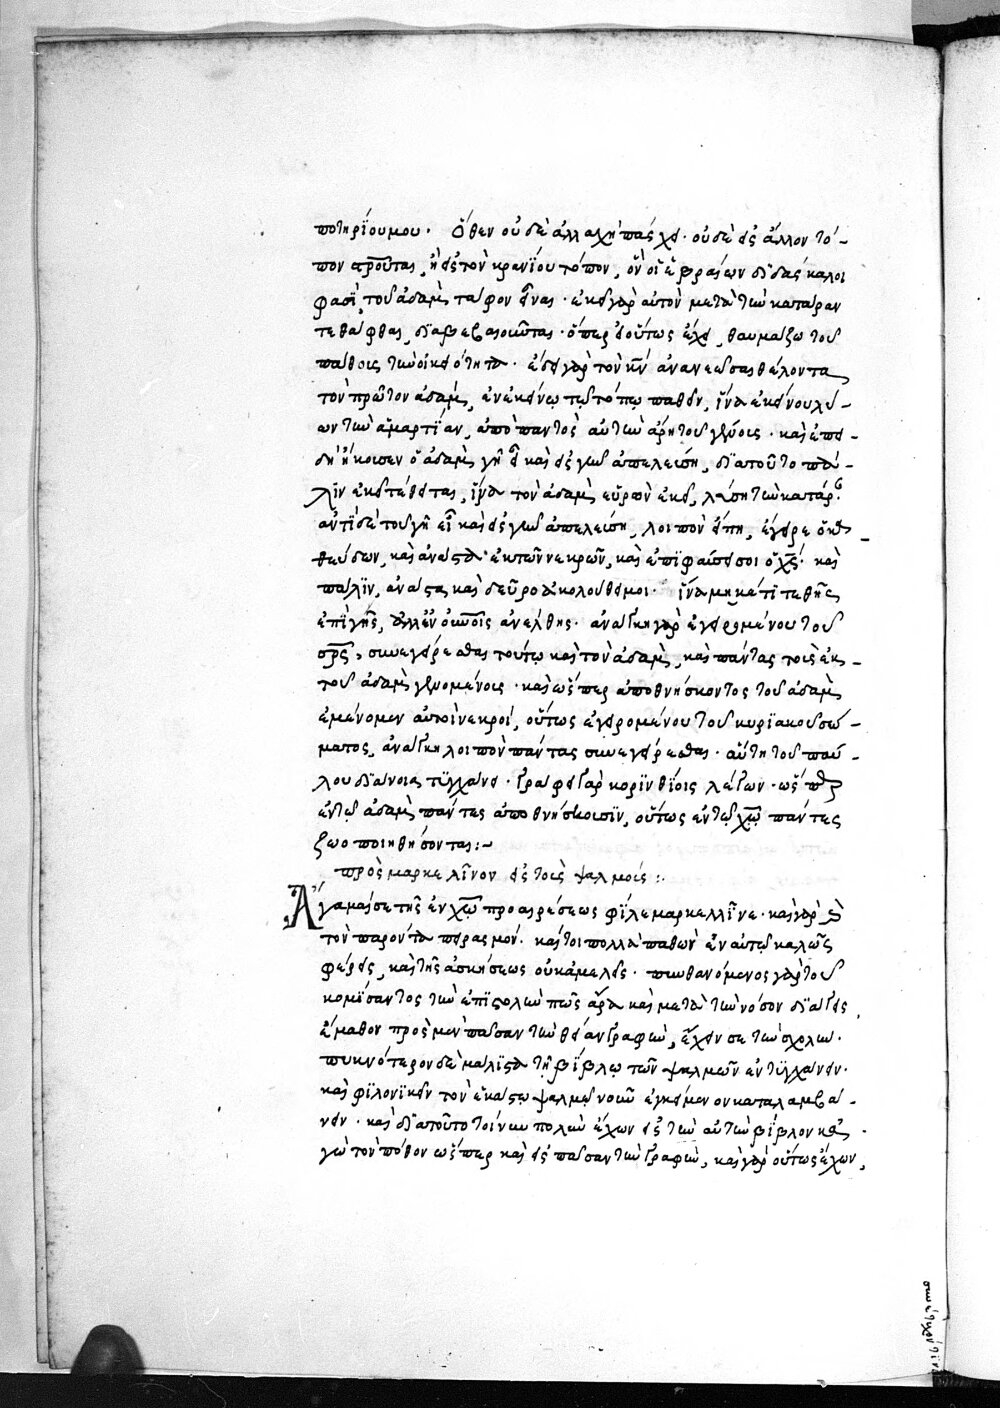 ποτηρίου μου. Ὅθεν οὐδὲ ἀλλαχῆ πάσχει. οὐδὲ εἰς ἄλλον τό-
πον σταυροῦται, ἢ εἰς τὸν κρανίου τόπον, ὃν οἱ ἑβραίων διδάσκαλοι
φασὶ, τοῦ ἀδὰμ, τάφον εἶναι. ἐκεῖ γὰρ αὐτὸν μετὰ τὴν κατάραν
τεθάφθαι, διαβεβαιοῦνται. ὅπερ εἰ οὕτως ἔχει, θαυμάζω τοῦ
πάθους τὴν οἰκειότητα. ἔδει γὰρ τὸν κν̄ ἀνανεῶσαι θέλοντα
τὸν πρῶτον ἀδὰμ, ἐν ἐκείνω τῷ τόπῳ παθεῖν, ἵνα ἐκείνου λύ-
ων τὴν ἁμαρτίαν, ἀπὸ παντὸς αὐτὴν ἄρη τοῦ γένους. καὶ ἐπει-
δὴ ἤκουσεν ὁ ἀδὰμ γῆ εἶ καὶ εἰς γῆν ἀπελεύση, διατοῦτο πά-
λιν ἐκεῖ τέθειται, ἵνα τὸν ἀδὰμ εὑρὼν ἐκεῖ, λύση τὴν κατάρ.
ἀντὶ δὲ τοῦ γῆ εἶ καὶ εἰς γῆν ἀπελεύση, λοιπὸν εἴπη, ἔγειρε ὁ κα-
θεύδων, καὶ ἀνάστα ἐκ τῶν νεκρῶν, καὶ ἐπιφαύσει σοι ὁ χς̄. καὶ
πάλιν, ἀνάστα καὶ δεῦρο ἀκολούθει μοι. ἵνα μηκέτι τεθῆς
ἐπὶ γῆς, ἀλλ' ἐν οὐνοῖς ἀνέλθης. ἀνάγκη γὰρ ἐγειρομένου τοῦ
σρς̄, συνεγείρεσθαι τούτω καὶ τὸν ἀδὰμ, καὶ πάντας τοὺς ἐκ
τοῦ ἀδὰμ γενομένους. καὶ ὥσπερ ἀποθνήσκοντος τοῦ ἀδὰμ
ἐμένομεν νεκροὶ, οὕτως ἐγειρομένου τοῦ κυριακοῦ σώ-
ματος, ἀνάγκη λοιπὸν πάντας συνεγείρεσθαι. αὕτη τοῦ παύ-
λου διάνοια τυγχάνει. γράφει γὰρ κορινθίοις λέγων. ὥσπερ
ἐν τῷ ἀδὰμ πάντες ἀποθνήσκουσιν, οὕτως ἐν τῷ χω̄ πάντες
ζωοποιηθήσονται:~
πρὸς μαρκελῖνον εἰς τοὺς ψαλμούς:
Ἄγαμαί σε τῆς ἐν χω̄ προαιρέσεως φίλε μαρκελλῖνε. καὶ γὰρ καὶ
τὸν παρόντα πειρασμόν. καίτοι πολλὰ παθὼν ἐν αὐτῷ καλῶς
φέρεις, καὶ τῆς ἀσκήσεως οὐκ ἀμελεῖς. πυνθανόμενος γὰρ τοῦ
κομίσαντος τὴν ἐπιστολὴν πῶς ἄρα καὶ μετὰ τὴν νόσον διάγεις,
ἔμαθον πρὸς μὲν πᾶσαν τὴν θείαν γραφὴν, ἔχειν σε τὴν σχολήν.
πυκνότερον δὲ μάλιστα τῇ βίβλῳ τῶν ψαλμῶν ἐντυγχάνειν.
καὶ φιλονικεῖν τὸν ἑκάστῳ ψαλμῷ νοῦν ἐγκείμενον καταλαμβά-
νειν. καὶ διατοῦτο τοίνυν πολὺν ἔχων εἰς τὴν αὐτὴν βίβλον κα-
γὼ τὸν πόθον ὥσπερ καὶ εἰς πᾶσαν τὴν γραφὴν, καὶ γὰρ οὕτως ἔχων,